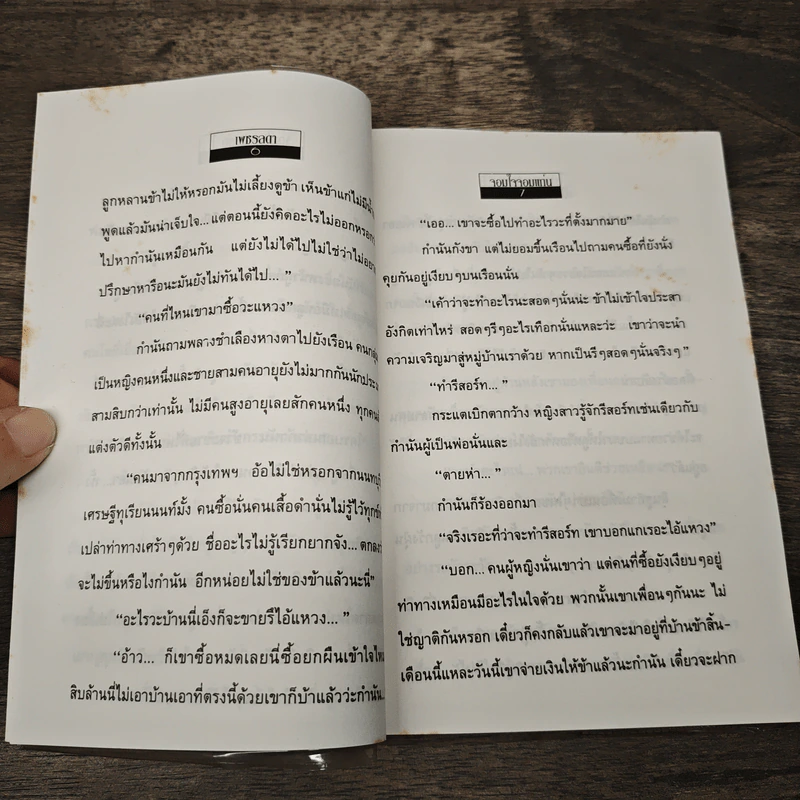 เพชรลดา
ลูกหลานข้าไม่ให้หรอกมันไม่เลี้ยงดูข้า เห็นข้าแก่ไม่มี
พูดแล้วมันน่าเจ็บใจ... แต่ตอนนี้ยังคิดอะไรไม่ออกหรอก
ไปหากำนันเหมือนกัน แต่ยังไม่ได้ไปไม่ใช่ว่าไม่
ปรึกษาหารือนะมันยังไม่ทันได้ไป... ”
“คนที่ไหนเขามาซื้อวะแหวง”
กำนันถามพลางชำเลืองหางตาไปยังเรือน
เป็นหญิงคนหนึ่งและชายสามคนอายุยังไม่มากกันนัก
สามสิบกว่าเท่านั้น ไม่มีคนสูงอายุเลยสักคนหนึ่ง
แต่งตัวดีทั้งนั้น
“คนมาจากกรุงเทพฯ อ้อไม่ใช่หรอกจากนนทบุรี
เศรษฐีทุเรียนนนท์มั้ง คนซื้อนั่นคนเสื้อดำนั่นไม่รู้ไว้ทุกข์
เปล่าท่าทางเศร้าๆด้วย ชื่ออะไรไม่รู้เรียกยากจัง...
จะไม่ขึ้นหรือไงกำนัน อีกหน่อยไม่ใช่ของข้าแล้วนะนี่”
“อะไรวะบ้านนี่เอ็งก็จะขายรึไอ้แหวง... ”
“อ้าว... ก็เขาซื้อหมดเลยนี่ซื้อยกผืนเข้าใจไหม
สิบล้านนี่ไม่เอาบ้านเอาที่ตรงนี้ด้วยเขาก็บ้าแล้วว่ะกำนัน...
จอมใจจอมแก่น
7
“เออ... เขาจะซื้อไปทำอะไรวะที่ตั้งมากมาย”
กำนันกังขา แต่ไม่ยอมขึ้นเรือนไปถามคนซื้อที่ยังนั่ง
คุยกันอยู่เงียบๆบนเรือนนั่น
“เค้าว่าจะทำอะไรนะสอดๆนั่นน่ะ ข้าไม่เข้าใจประสา
อังกิตเท่าไหร่ สอดๆรีๆอะไรเทือกนั่นแหละว่ะ เขาว่าจะนำ
ความเจริญมาสู่หมู่บ้านเราด้วย หากเป็นรีๆสอดๆนั่นจริงๆ”
“ทำรีสอร์ท... ”
กระแตเบิกตากว้าง หญิงสาวรู้จักรีสอร์ทเช่นเดียวกับ
กำนันผู้เป็นพ่อนั่นและ
“ตายห่า... ”
กำนันก็ร้องออกมา
“จริงเรอะที่ว่าจะทำรีสอร์ท เขาบอกแกเรอะไอ้แหวง”
“บอก... คนผู้หญิงนั่นเขาว่า แต่คนที่ซื้อยังเงียบๆอยู่
ท่าทางเหมือนมีอะไรในใจด้วย พวกนั้นเขาเพื่อนๆกันนะ ไม่
ใช่ญาติกันหรอก เดี๋ยวก็คงกลับแล้วเขาจะมาอยู่ที่บ้านข้าสิ้น-
เดือนนี้แหละวันนี้เขาจ่ายเงินให้ข้าแล้วนะกำนัน เดี๋ยวจะฝาก